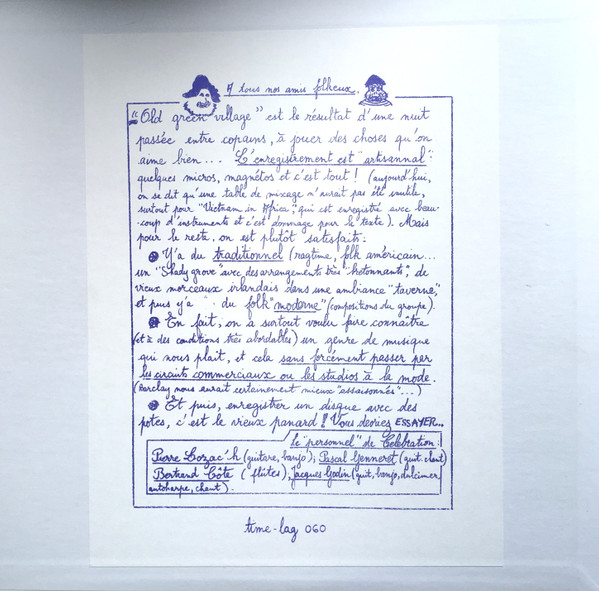 A tous nos amis folkeux.
"Old green village" est le résultat d'une nuit
passée entre copains, à jouer des choses qu'on
aime bien... L'enregistrement est "artisannal":
quelques micros, magnétos et c'est tout ! (aujourd'hui,
on se dit qu'une table de mixage n'aurait pas été inutile,
surtout pour "Vietnam in Africa", qui est enregistré avec beau-
-coup d'instruments et c'est dommage pour le texte). Mais
pour le reste, on est plutôt satisfaits:
Y'a du traditionnel (ragtime, folk américain...
un "Shady grove" avec des arrangements très "hétonnants", de
vieux morceaux irlandais dans une ambiance "taverne",
et puis y'a du folk "moderne" (compositions du groupe).
En fait, on a surtout voulu faire connaître
(et à des conditions très abordables) un genre de musique
qui nous plait, et cela sans forcément passer par
les circuits commerciaux ou les studios à la mode.
(Barclay nous aurait certainement mieux "assaisonnés"...)
Et puis, enregistrer un disque avec des
potes, c'est le vieux panard ! Vous devriez ESSAYER...
le "personnel" de Celebration:
Pierre Lozac'h (guitare, banjo); Pascal Genneret (guit. chant)
Bertrand Côte (flûtes), Jacques Godin (guit, banjo, dulcimer,
autoharpe, chant).
time-lag 060